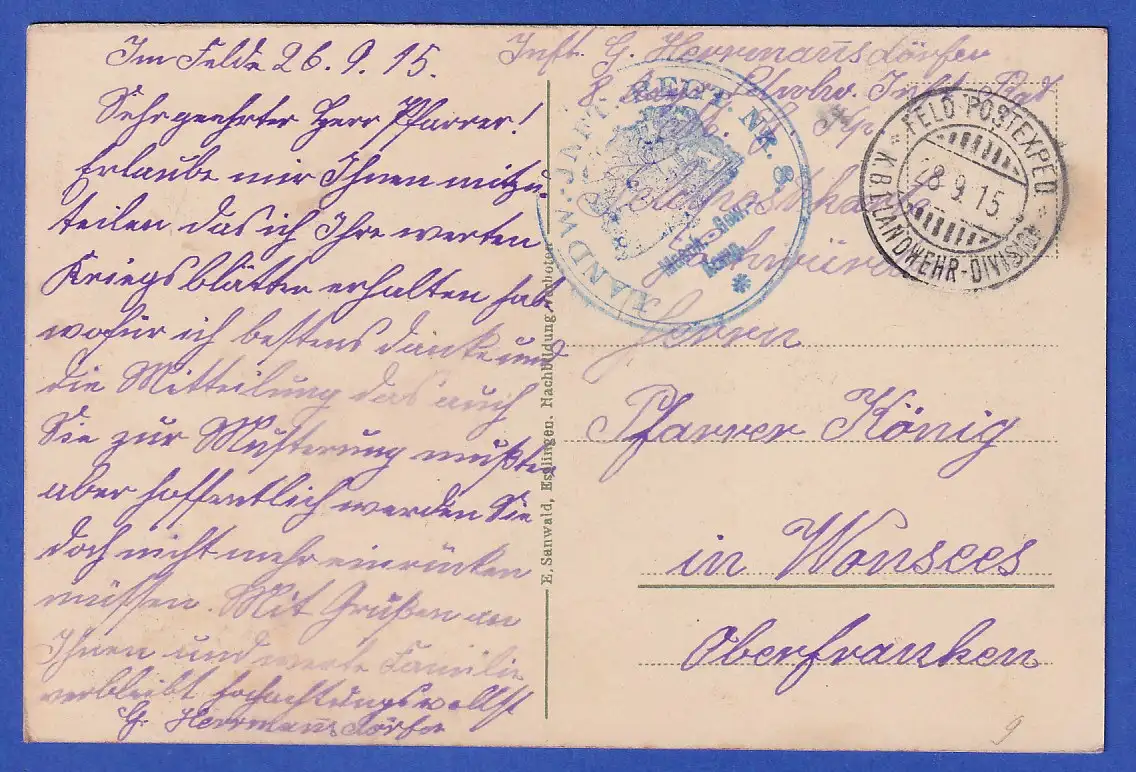 Im Felde 26. 9. 15.
Sehrgeehrter Herr Pfarrer!
Erlaube mir Ihnen mitzu-
teilen das ich Ihre werten
Kriegsblätter erhalten habe
wofür ich bestens danke und
die Mitteilung das auch
Sie zur Musterung mußten
aber hoffentlich werden Sie
doch nicht mehr einrücken
müssen. Mit Grüßen an
Ihnen und werte Familie
verbleibt hochachtungsvollst
G. Herrmannsdörfer
E. Sanwald, Esslingen. Nachbildung verboten.
Inft. G. Herrmannsdörfer
8. Landw. Inft. Rgt
Feldpostkarte
Hochwürden
Herrn
Pfarrer König
in Wonsees
Oberfranken
LANDW. INFT. REGT. NR. 8.
Masch.-Gew.
FELD POSTEXPED.
28 9. 15
K.B.1.LANDWEHR-DIVISION
9